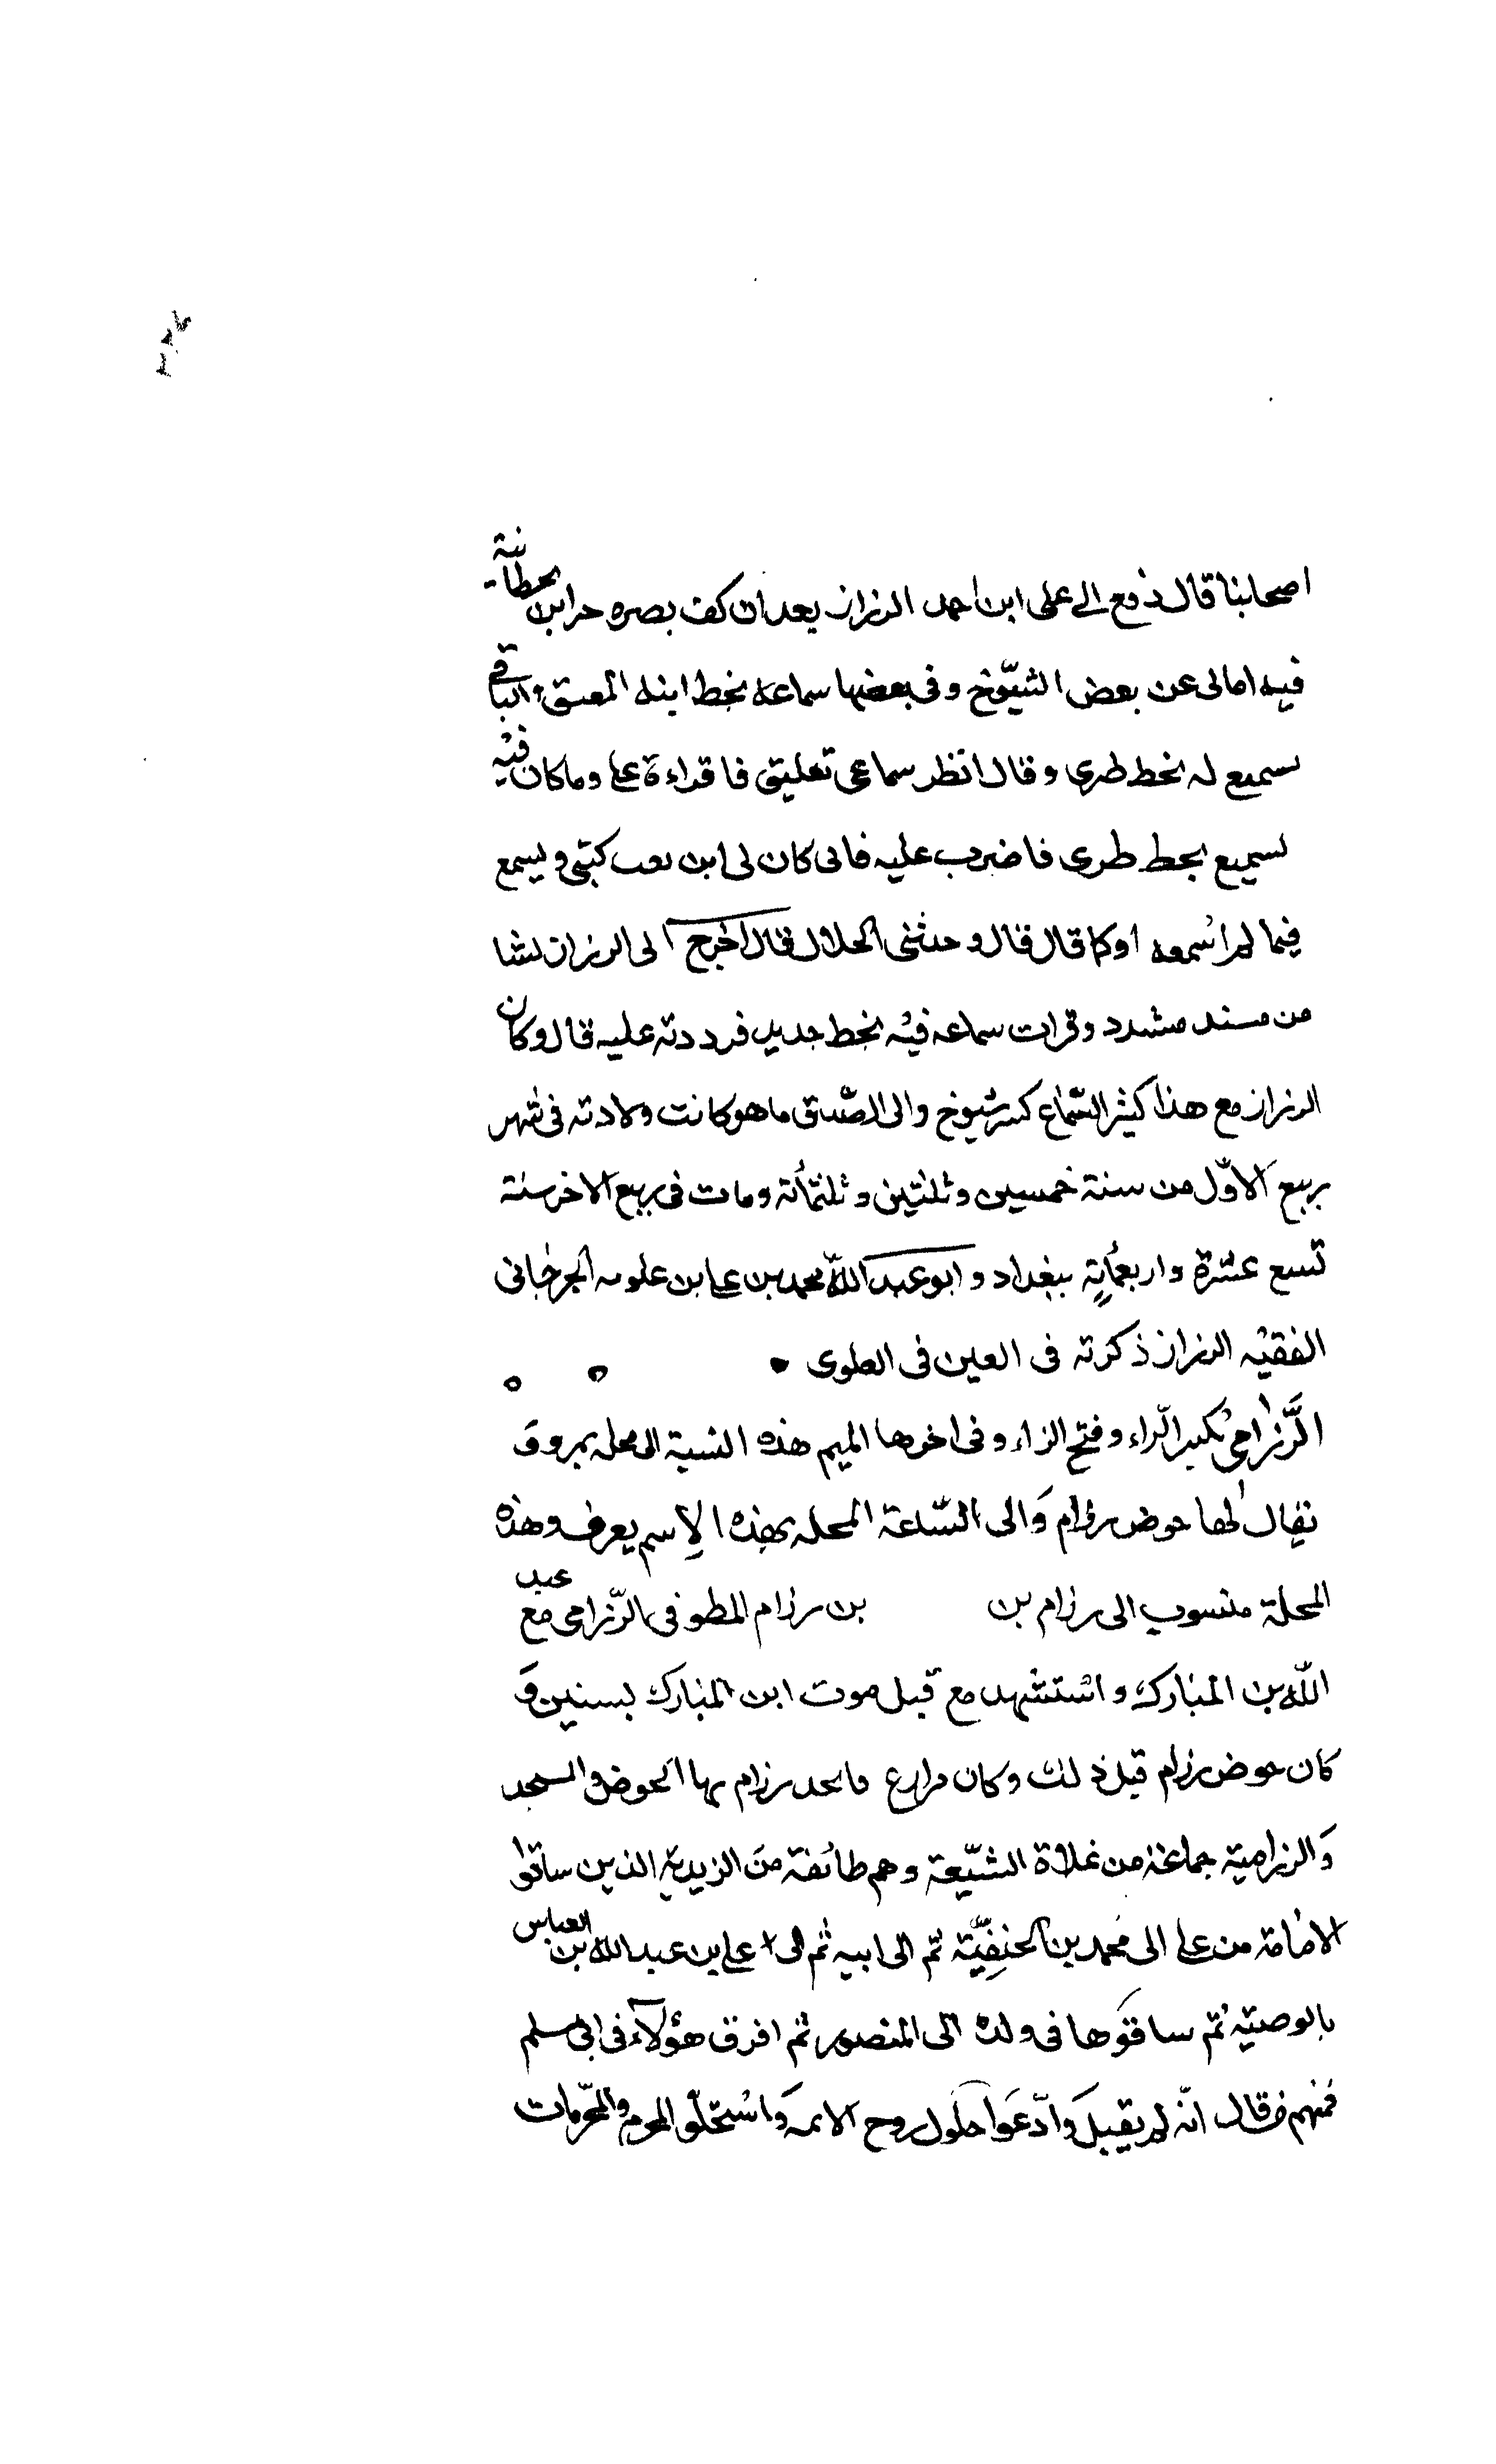 اصحابنا قال دفع الى على ابن احمد الرزاز بعد ان كف بصره حرا بن بخطانية
فيه امالى عن بعض الشيّوخ وفى بعضها سماعه بخط ابنه العتيق والباقى
تسميع له بخط طرى وقال انظر سماعى تعليق فاقراءة على وماكان فيه
تسميع بخط طرى فاضرب عليه فانى كان لى ابن كتبى ويسمع
فيما لم اسمعه اوكما قال قال وحدثنى الخلال قال اخرج الى الرزاز شا
من مسند مسدد وقرات سماعه فيه بخط جديد فرددته عليه قال وكان
الرزاز مع هذا كثير السّماع كثير شيوخ والى الصّدق ماهو كانت ولادته فى شهر
ربيع الاوّل من سنة خمسين وثلثين وثلثمأئة ومات فى ربيع الاخر سنة
تسع عشرة واربعمأية ببغداد وابو عبد الله محمد بن على بن علويه الجرجانى
الفقيه الرزاز ذكرته فى العين فى العلوى
الرّزامى بكسر الرّاء وفتح الزاء وفى اخرها الميم هذه النسبة الى محله بمرو وَ
يقال لها حوض رزام وَالى السّاعة المحله بهذه الاِسم يعرف وهذه
المحلة منسوب الى رزام بن بن رزام المطوفى الرّزامى مع عبد
الله بن المبارك واستشهد مع قبل موت ابن المبارك بسنين وَ
كان حوض رزام قبل ذلك وكان مزارع فاتخذ رزام بها الحوض والمسجد
وَالرزامية جماعة من غلاة الشيّعة وهم طائفة من الزيدية الذين ساقوا
الامامة من على الى محمد بن الحنفِيّة ثم الى ابيه ثم الى على بن عبد الله بن العباس
بالوصيّة ثم ساقوها فى ولده الى المنصور ثم افرق هؤلاء فى ابى مسلم
فمنهم من قال انّه لم يقبل وَادّعَوا حلول روح الائمه وَاستحلّوا المحرم والمحرّمات